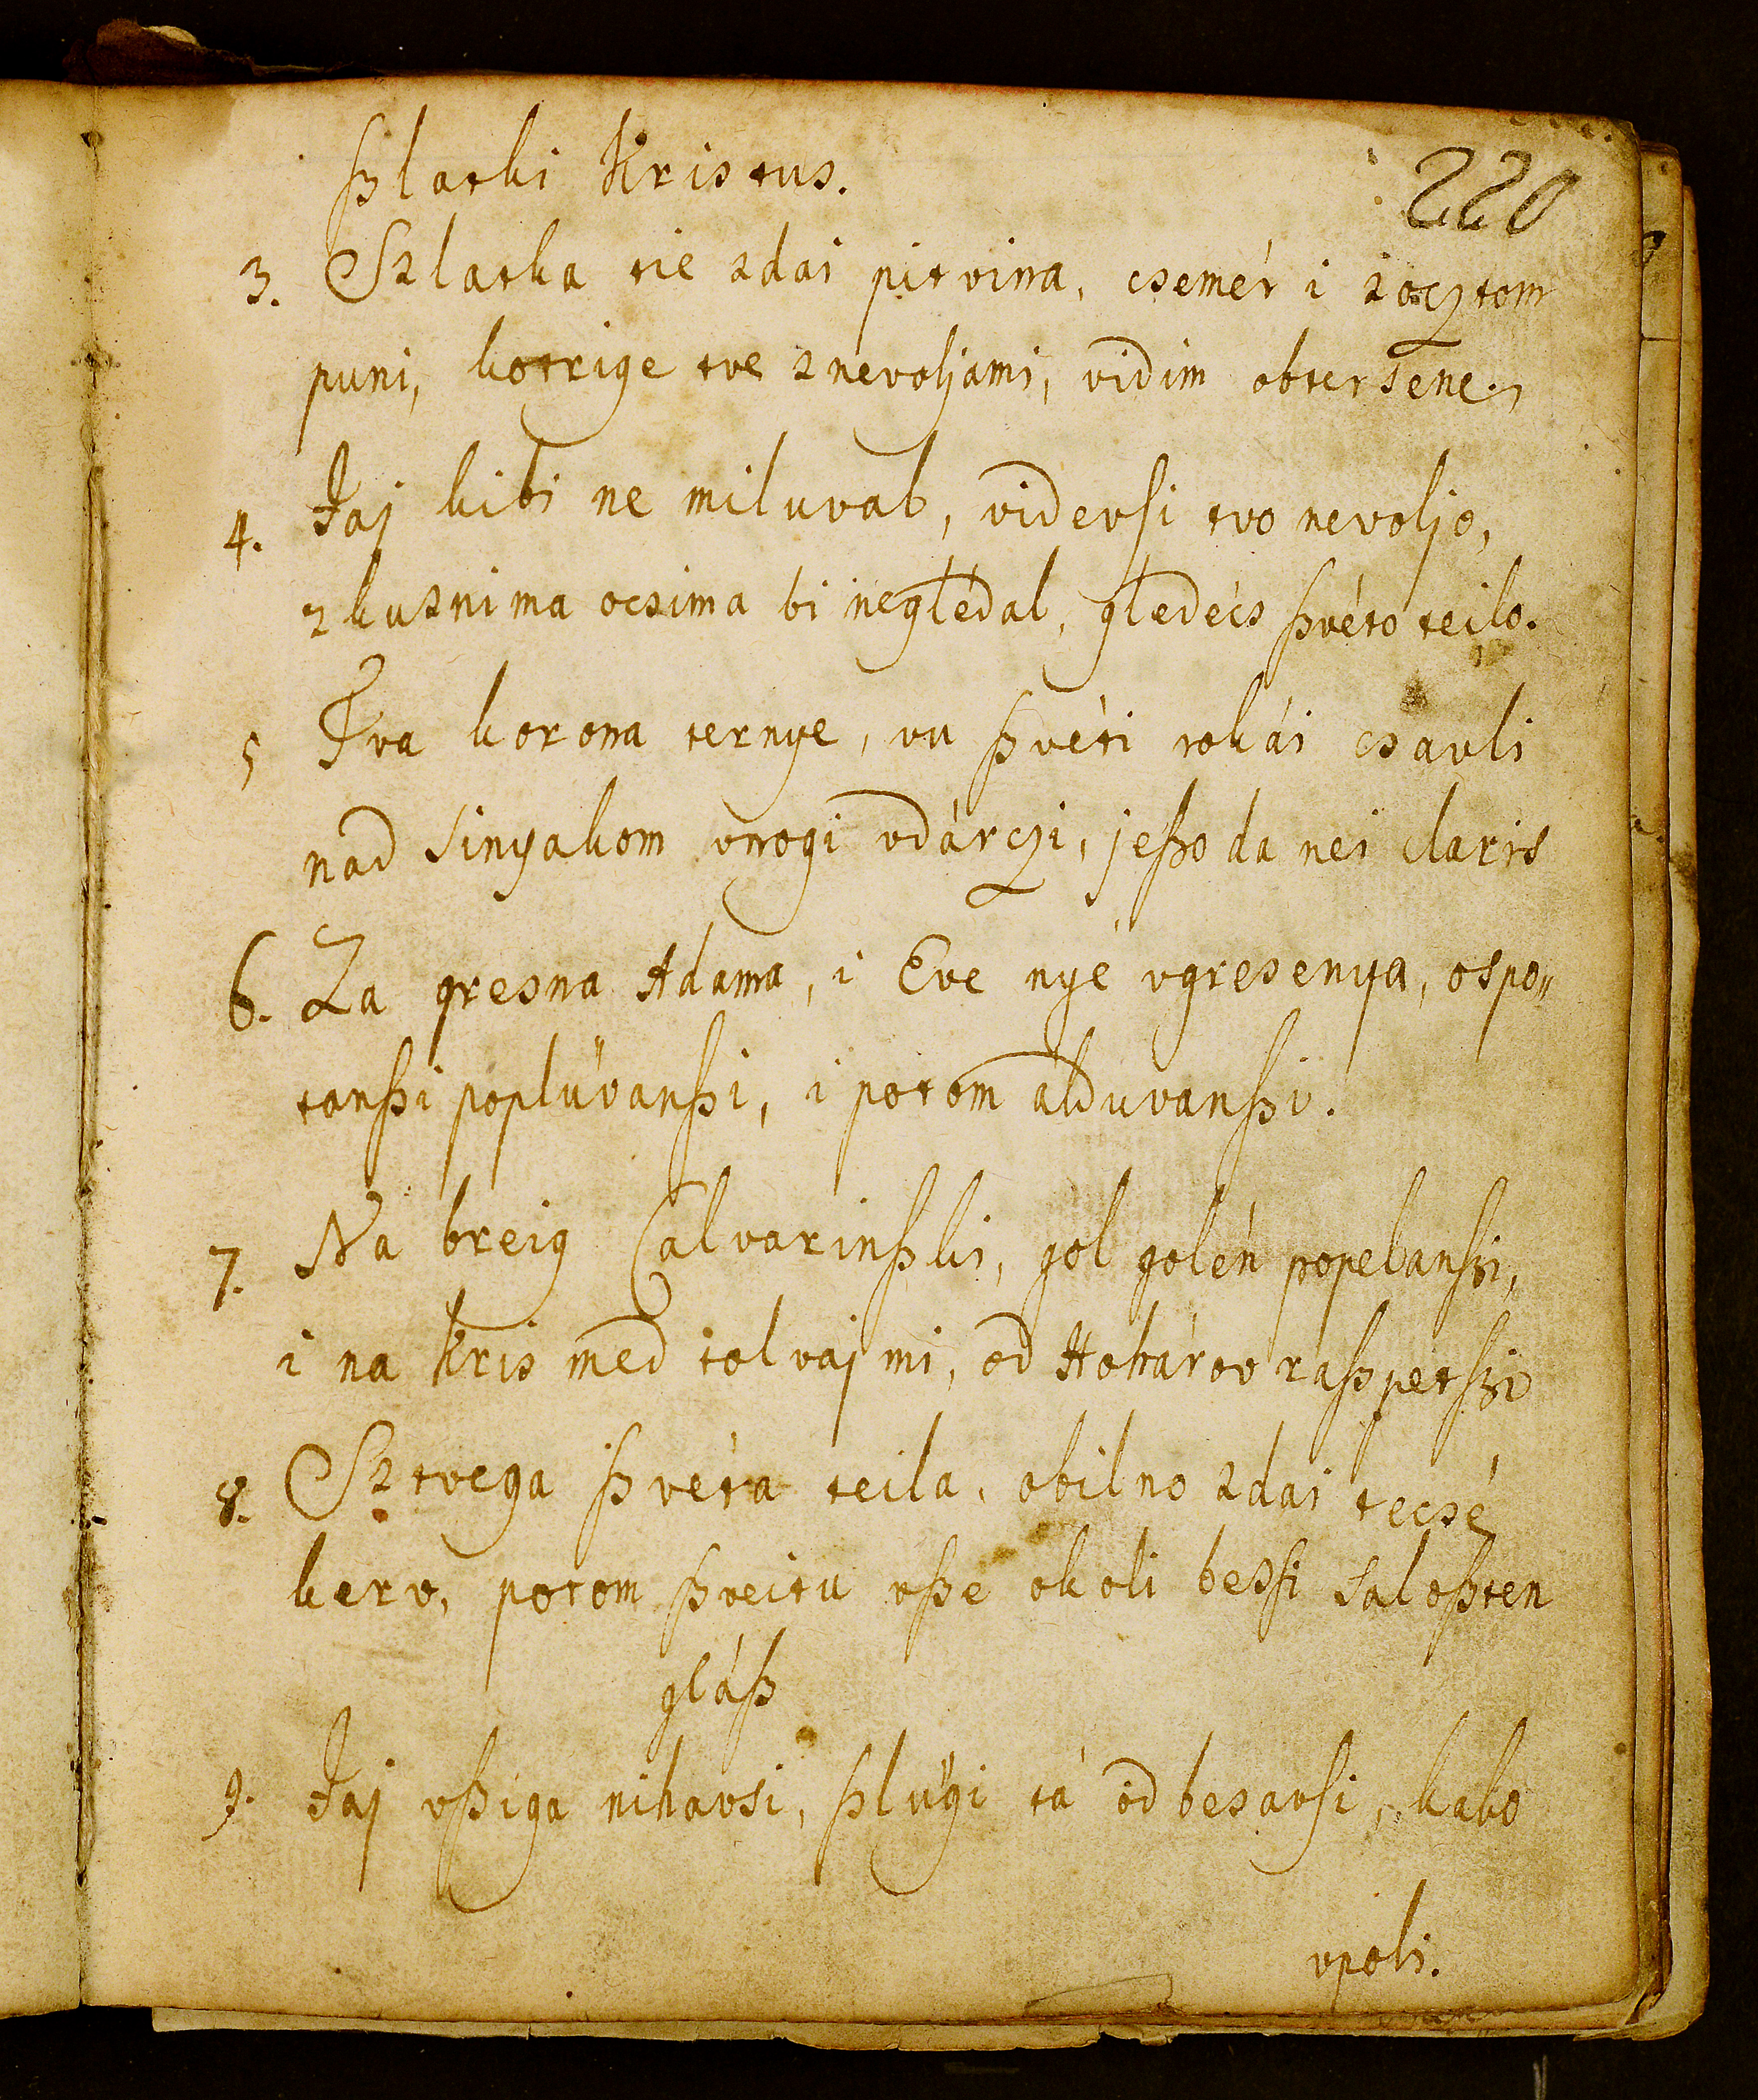 ßlatki Kristus.
220
3. Szlatka tie zdai pitvina, csemér i zocztom
puni, kotrige tve znevoljami, vidim obtersene.
4. Jaj kibi ne miluval, videvsi tvo nevoljo,
zkusnima ocsima bi neglédal, gledécs ßvéto teilo.
5 Tva korona ternye, vu ßvéti rokái csavli
nad sinyakom vnogi vdárczi, jeßo da nei claris
6. Za gresna Adama, i Eve nyé vgresenya, ospo„
tanßi poplüvanßi, i potom alduvanßi.
7. Na breig Calvarinßki, gol golén popelanßi,
i na kris med tolvajmi, od Hohárov raßpetßi
8. Sz tvega ßvéta teila, obilno zdai tecsé
kerv, potom ßveitu vße okoli besßi saloßten
gláß
9. Jaj vßiga nihavsi, ßlügi tá odbesavsi, kabo
vpoli.